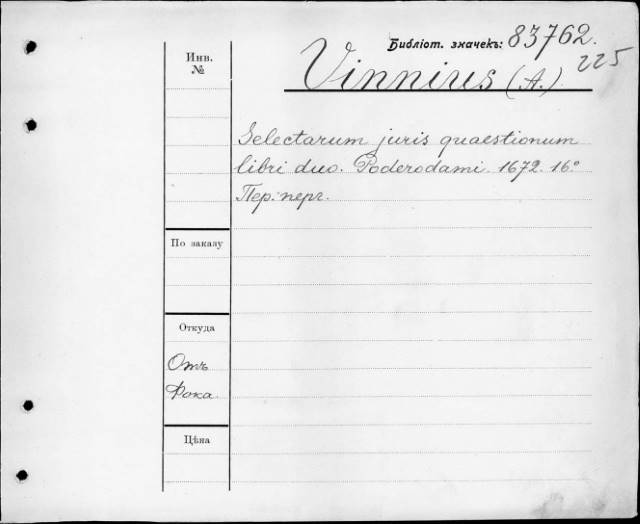 Библіот. значекъ: 83762.
225
Инв.
№
Vinnius (A.)
Selectarum juris quaestionum
libri duo. Roderodami. 1672. 16°
Пер. перг.
По заказу
Откуда
Отъ
Фока.
Цѣна